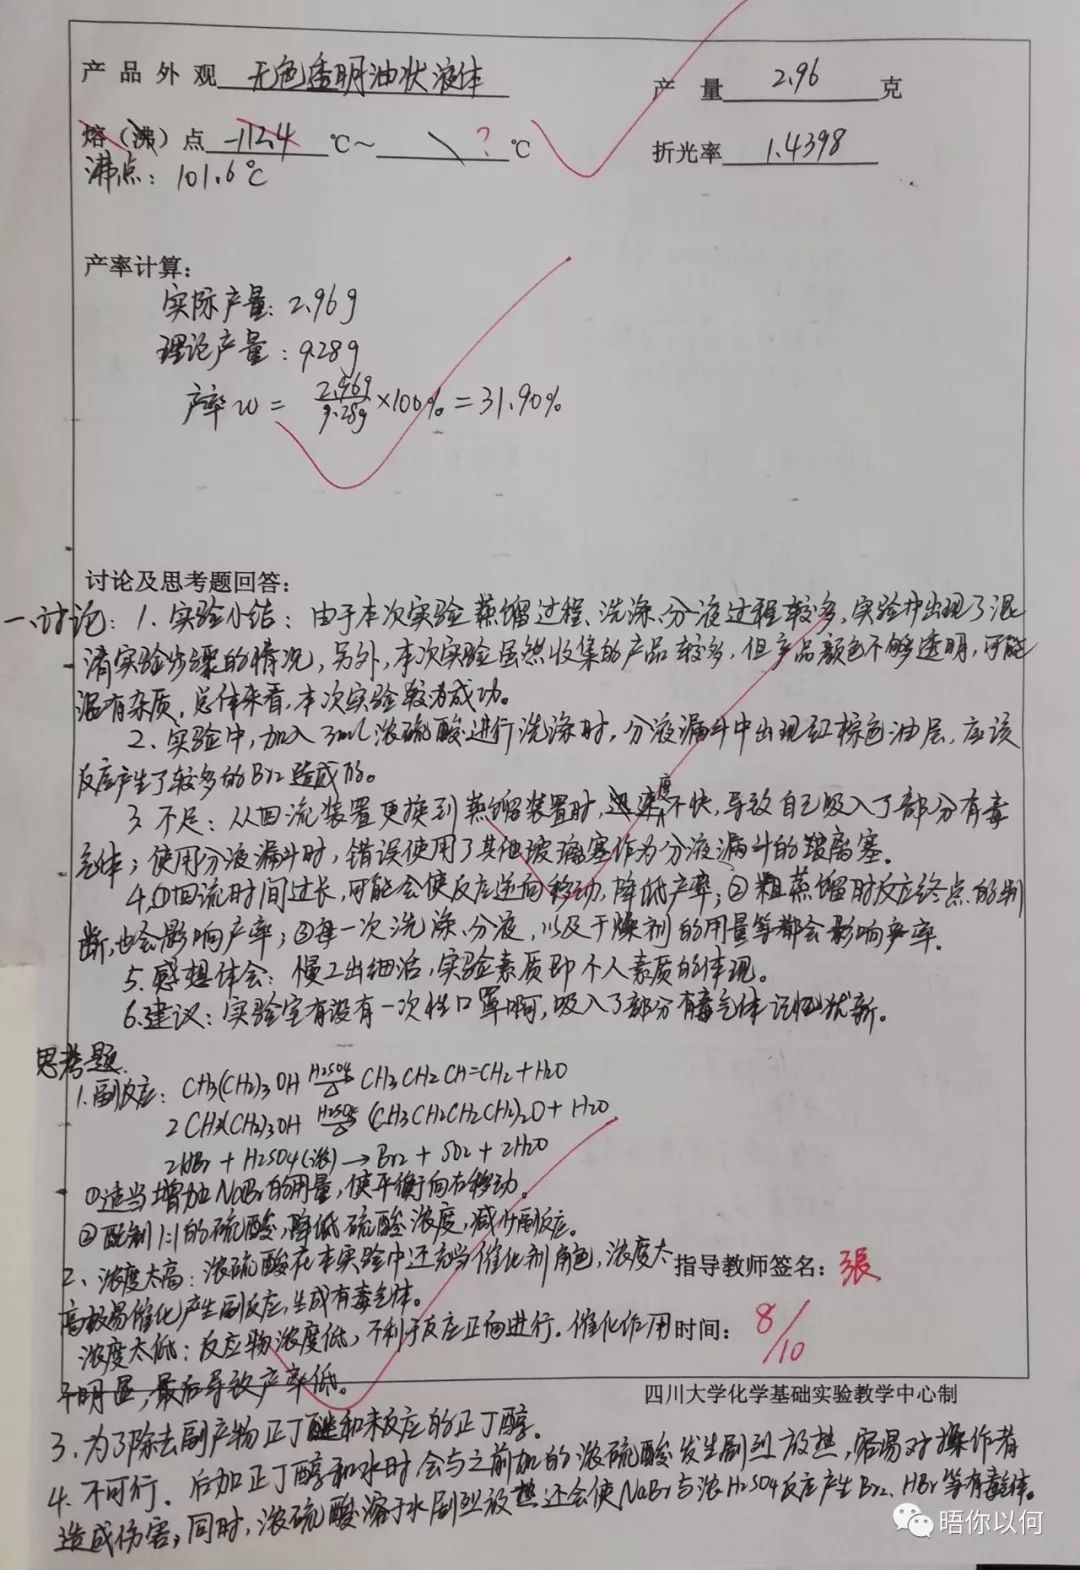 产 品 外 观 无色透明油状液体 产 量 2.96 克
熔（沸）点 -112.4 ℃～ \ ? ℃ 折光率 1.4398
沸点：101.6℃
产率计算：
实际产量：2.96g
理论产量：9.28g
产率w = 2.96g/9.28g ×100% = 31.90%
讨论及思考题回答：
一、讨论：1. 实验小结：由于本次实验蒸馏过程、洗涤、分液过程较多，实验中出现了混
淆实验步骤的情况，另外，本次实验虽然收集的产品较多，但产品颜色不够透明，可能
混有杂质，总体来看，本次实验较为成功。
2、实验中，加入3mL浓硫酸进行洗涤时，分液漏斗中出现红棕色油层，应该
反应产生了较多的Br2造成的。
3. 不足：从回流装置更换到蒸馏装置时，速度不快，导致自己吸入了部分有毒
气体；使用分液漏斗时，错误使用了其他玻璃塞作为分液漏斗的玻离塞。
4.①回流时间过长，可能会使反应逆向移动，降低产率；②粗蒸馏时反应终点的判
断，也会影响产率；③每一次洗涤、分液，以及干燥剂的用量等都会影响产率。
5. 感想体会：慢工出细活，实验素质即个人素质的体现。
6.建议：实验室有没有一次性口罩啊，吸入了部分有毒气体记忆犹新。
思考题.
1.副反应：CH3(CH2)3OH H2SO4 △ CH3CH2CH=CH2+H2O
2CH3(CH2)3OH H2SO4 △ (CH3CH2CH2CH2)2O+H2O
2HBr + H2SO4(浓) → Br2 + SO2 + 2H2O
①适当增加NaBr的用量，使平衡向右移动。
②配制1:1的硫酸，降低硫酸浓度，减少副反应。
2、浓度太高：浓硫酸在本实验中还充当催化剂角色，浓度太 指导教师签名：張
高极易催化产生副反应，生成有毒气体。
浓度太低：反应物浓度低，不利于反应正向进行.催化作用 时间：8/10
不明显，最后导致产率低。
四川大学化学基础实验教学中心制
3、为了除去副产物正丁醚和未反应的正丁醇。
4. 不可行. 后加正丁醇和水时会与之前加的浓硫酸发生剧烈放热，容易对操作者
造成伤害，同时，浓硫酸溶于水剧烈放热还会使NaBr与浓H2SO4反应产生Br2、HBr等有毒气体。
晤你以何